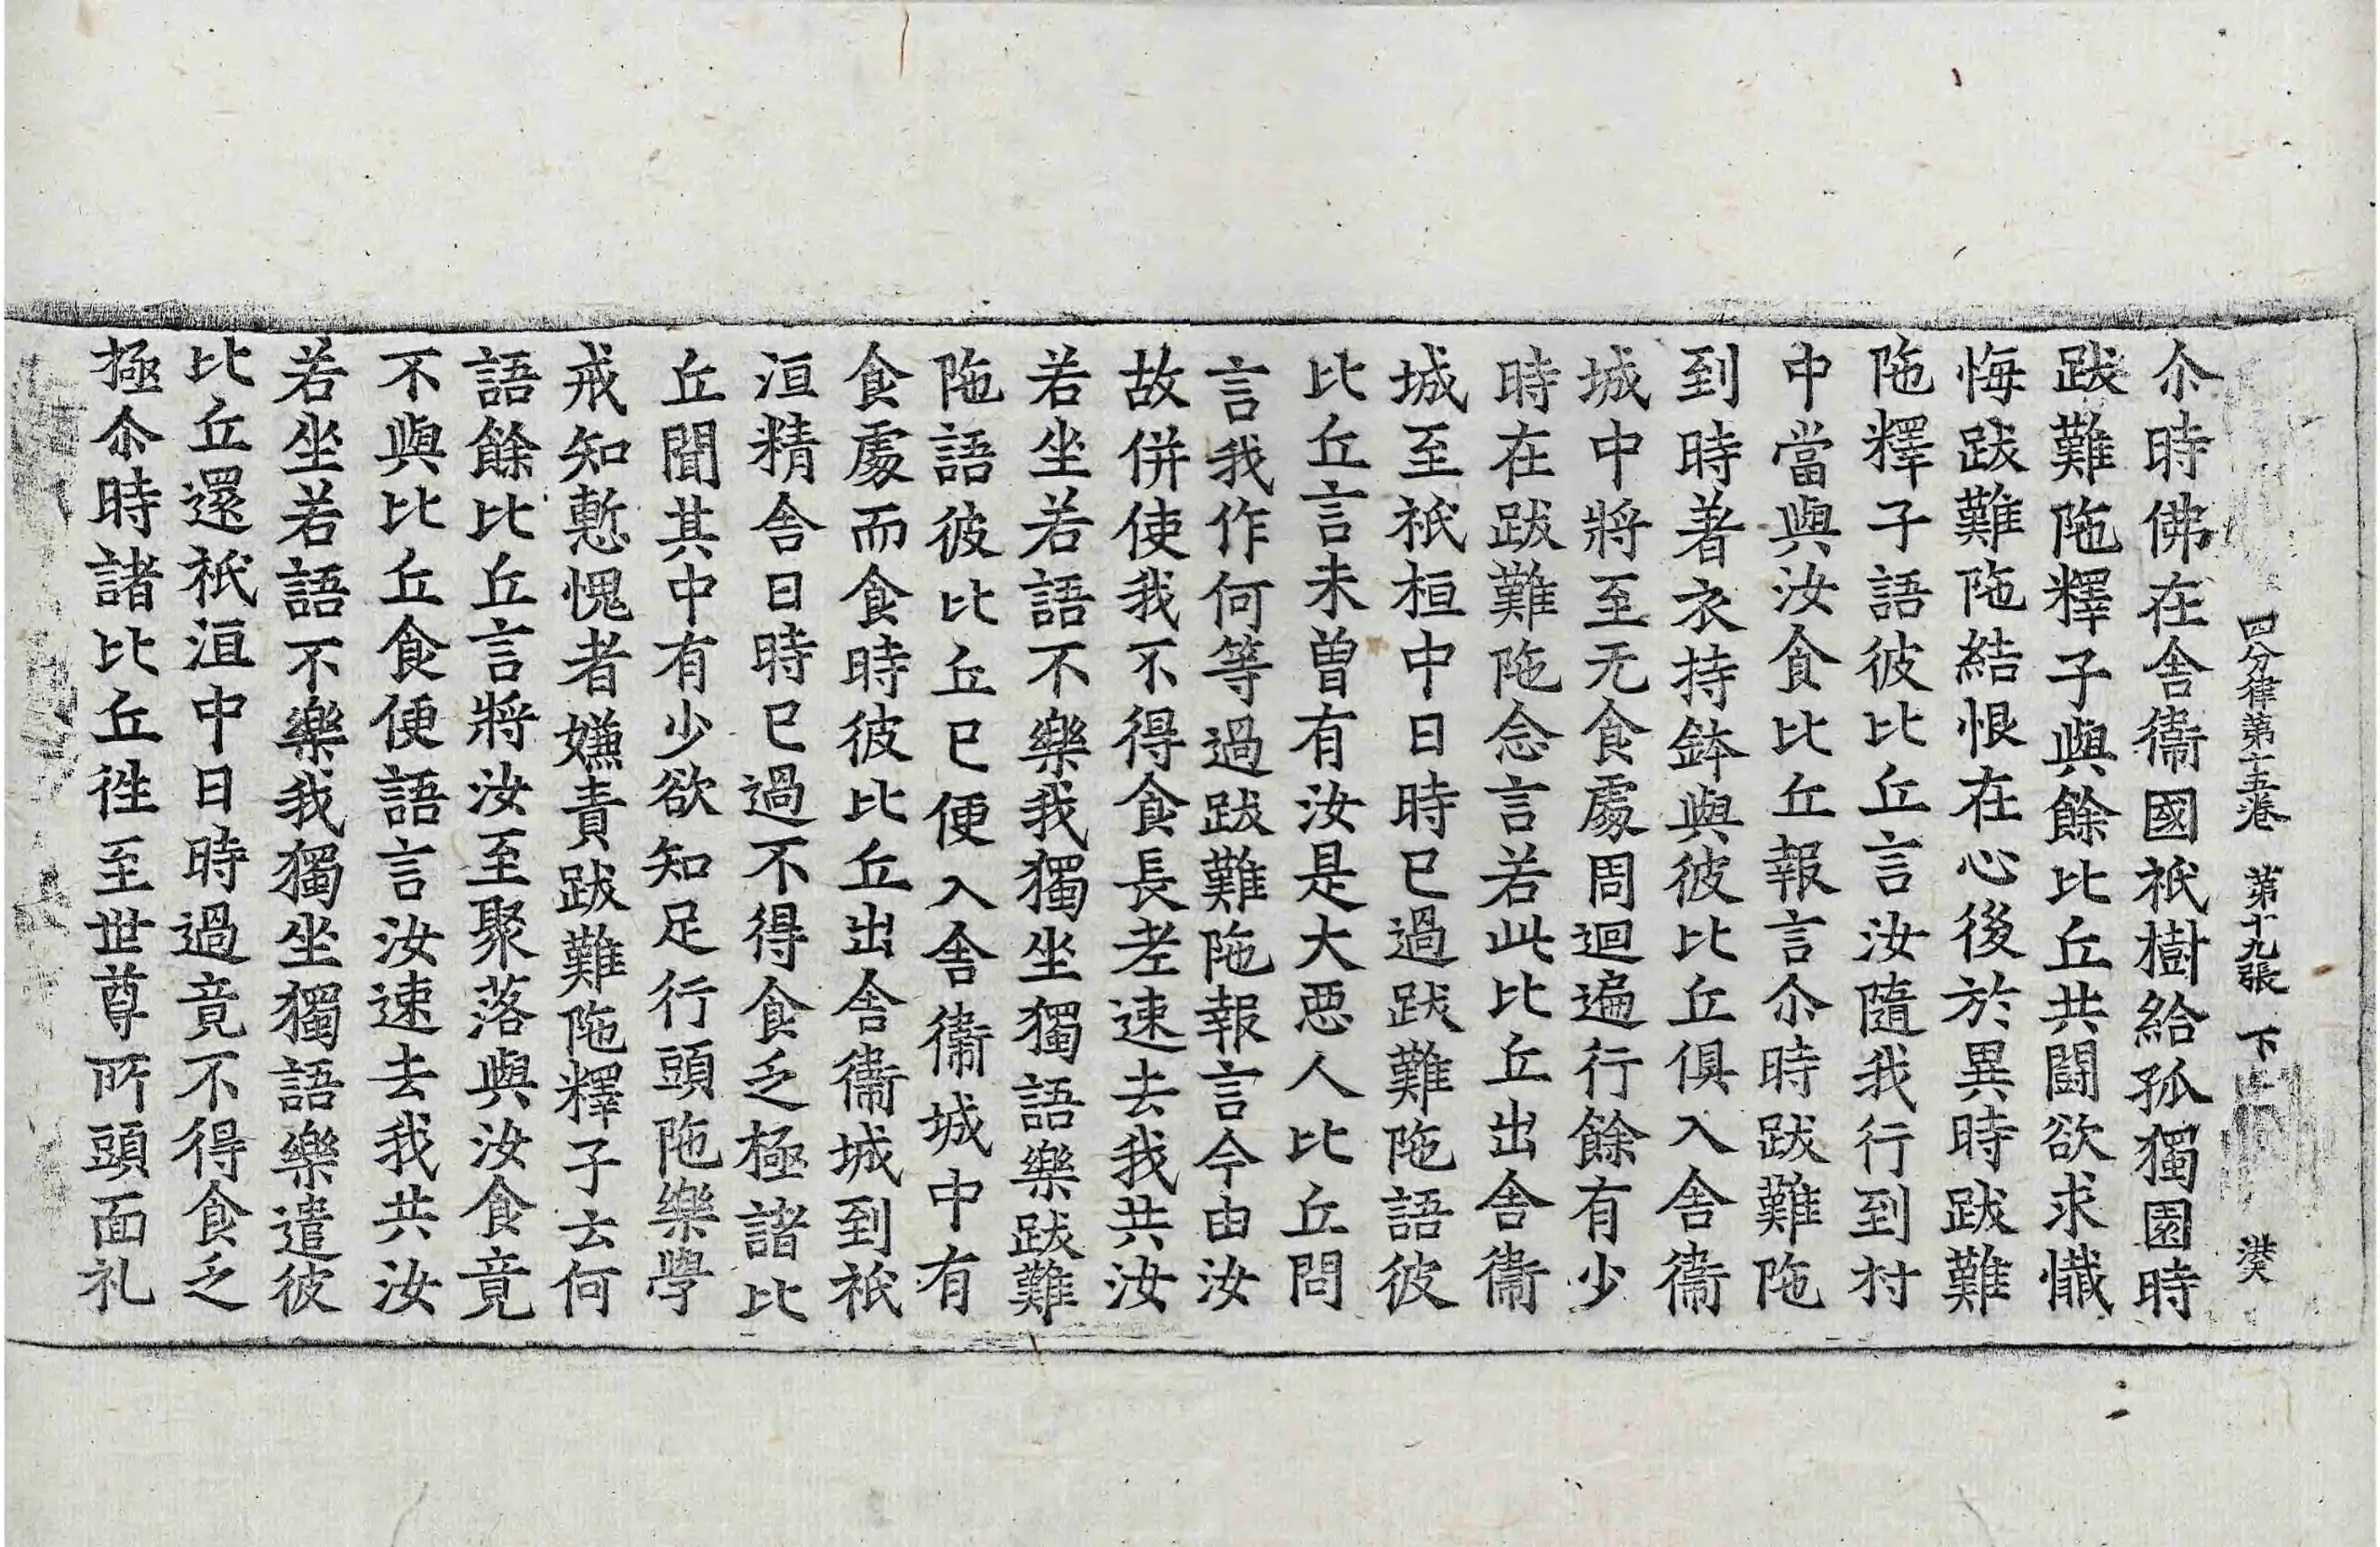 四分律第十五卷　第十九張　下
尒時佛在舎衞國祇樹給孤獨園時
跋難陁釋子與餘比丘共鬪欲求懺
悔跋難陁結恨在心後於異時跋難
陁釋子語彼比丘言汝隨我行到村
中當與汝食比丘報言尒時跋難陁
到時著衣持鉢與彼比丘俱入舎衞
城中將至无食處周迴遍行餘有少
時在跋難陁念言若此比丘出舎衞
城至祇桓中日時已過跋難陁語彼
比丘言未曾有汝是大惡人比丘問
言我作何等過跋難陁報言今由汝
故併使我不得食長老速去我共汝
若坐若語不樂我獨坐獨語樂跋難
陁語彼比丘已便入舎衞城中有
食處而食時彼比丘出舎衞城到祇
洹精舎日時已過不得食乏極諸比
丘聞其中有少欲知足行頭陁樂學
戒知慙愧者嫌責跋難陁釋子云何
語餘比丘言將汝至聚落與汝食竟
不與比丘食便語言汝速去我共汝
若坐若語不樂我獨坐獨語樂遣彼
比丘還祇洹中日時過竟不得食乏
極尒時諸比丘徃至世尊所頭面礼